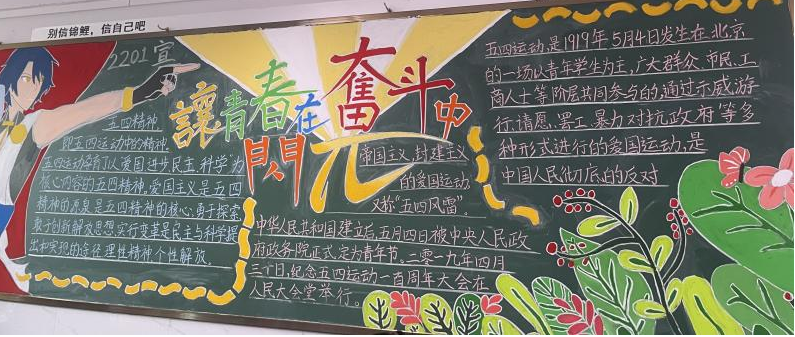 别信锦鲤，信自己吧
2201宣
讓青春在奮斗中
閃光
五四精神
即五四运动中的精神
五四运动孕育了以爱国进步民主科学为
核心内容的五四精神，爱国主义是五四
精神的源泉是五四精神的核心，勇于探索
敢于创新解放思想实行变革是民主与科学提
出和实现的途径，理性精神个性解放
五四运动是1919年5月4日发生在北京
的一场以青年学生为主，广大群众、市民、工
商人士等阶层共同参与的，通过示威游
行、请愿、罢工、暴力对抗政府等多
种形式进行的爱国运动，是
中国人民彻底的反对
帝国主义、封建主义
的爱国运动
又称“五四风雷”。
中华人民共和国建立后，五月四日被中央人民政
府政务院正式定为青年节。二零一九年四月
三十日，纪念五四运动一百周年大会在
人民大会堂举行。